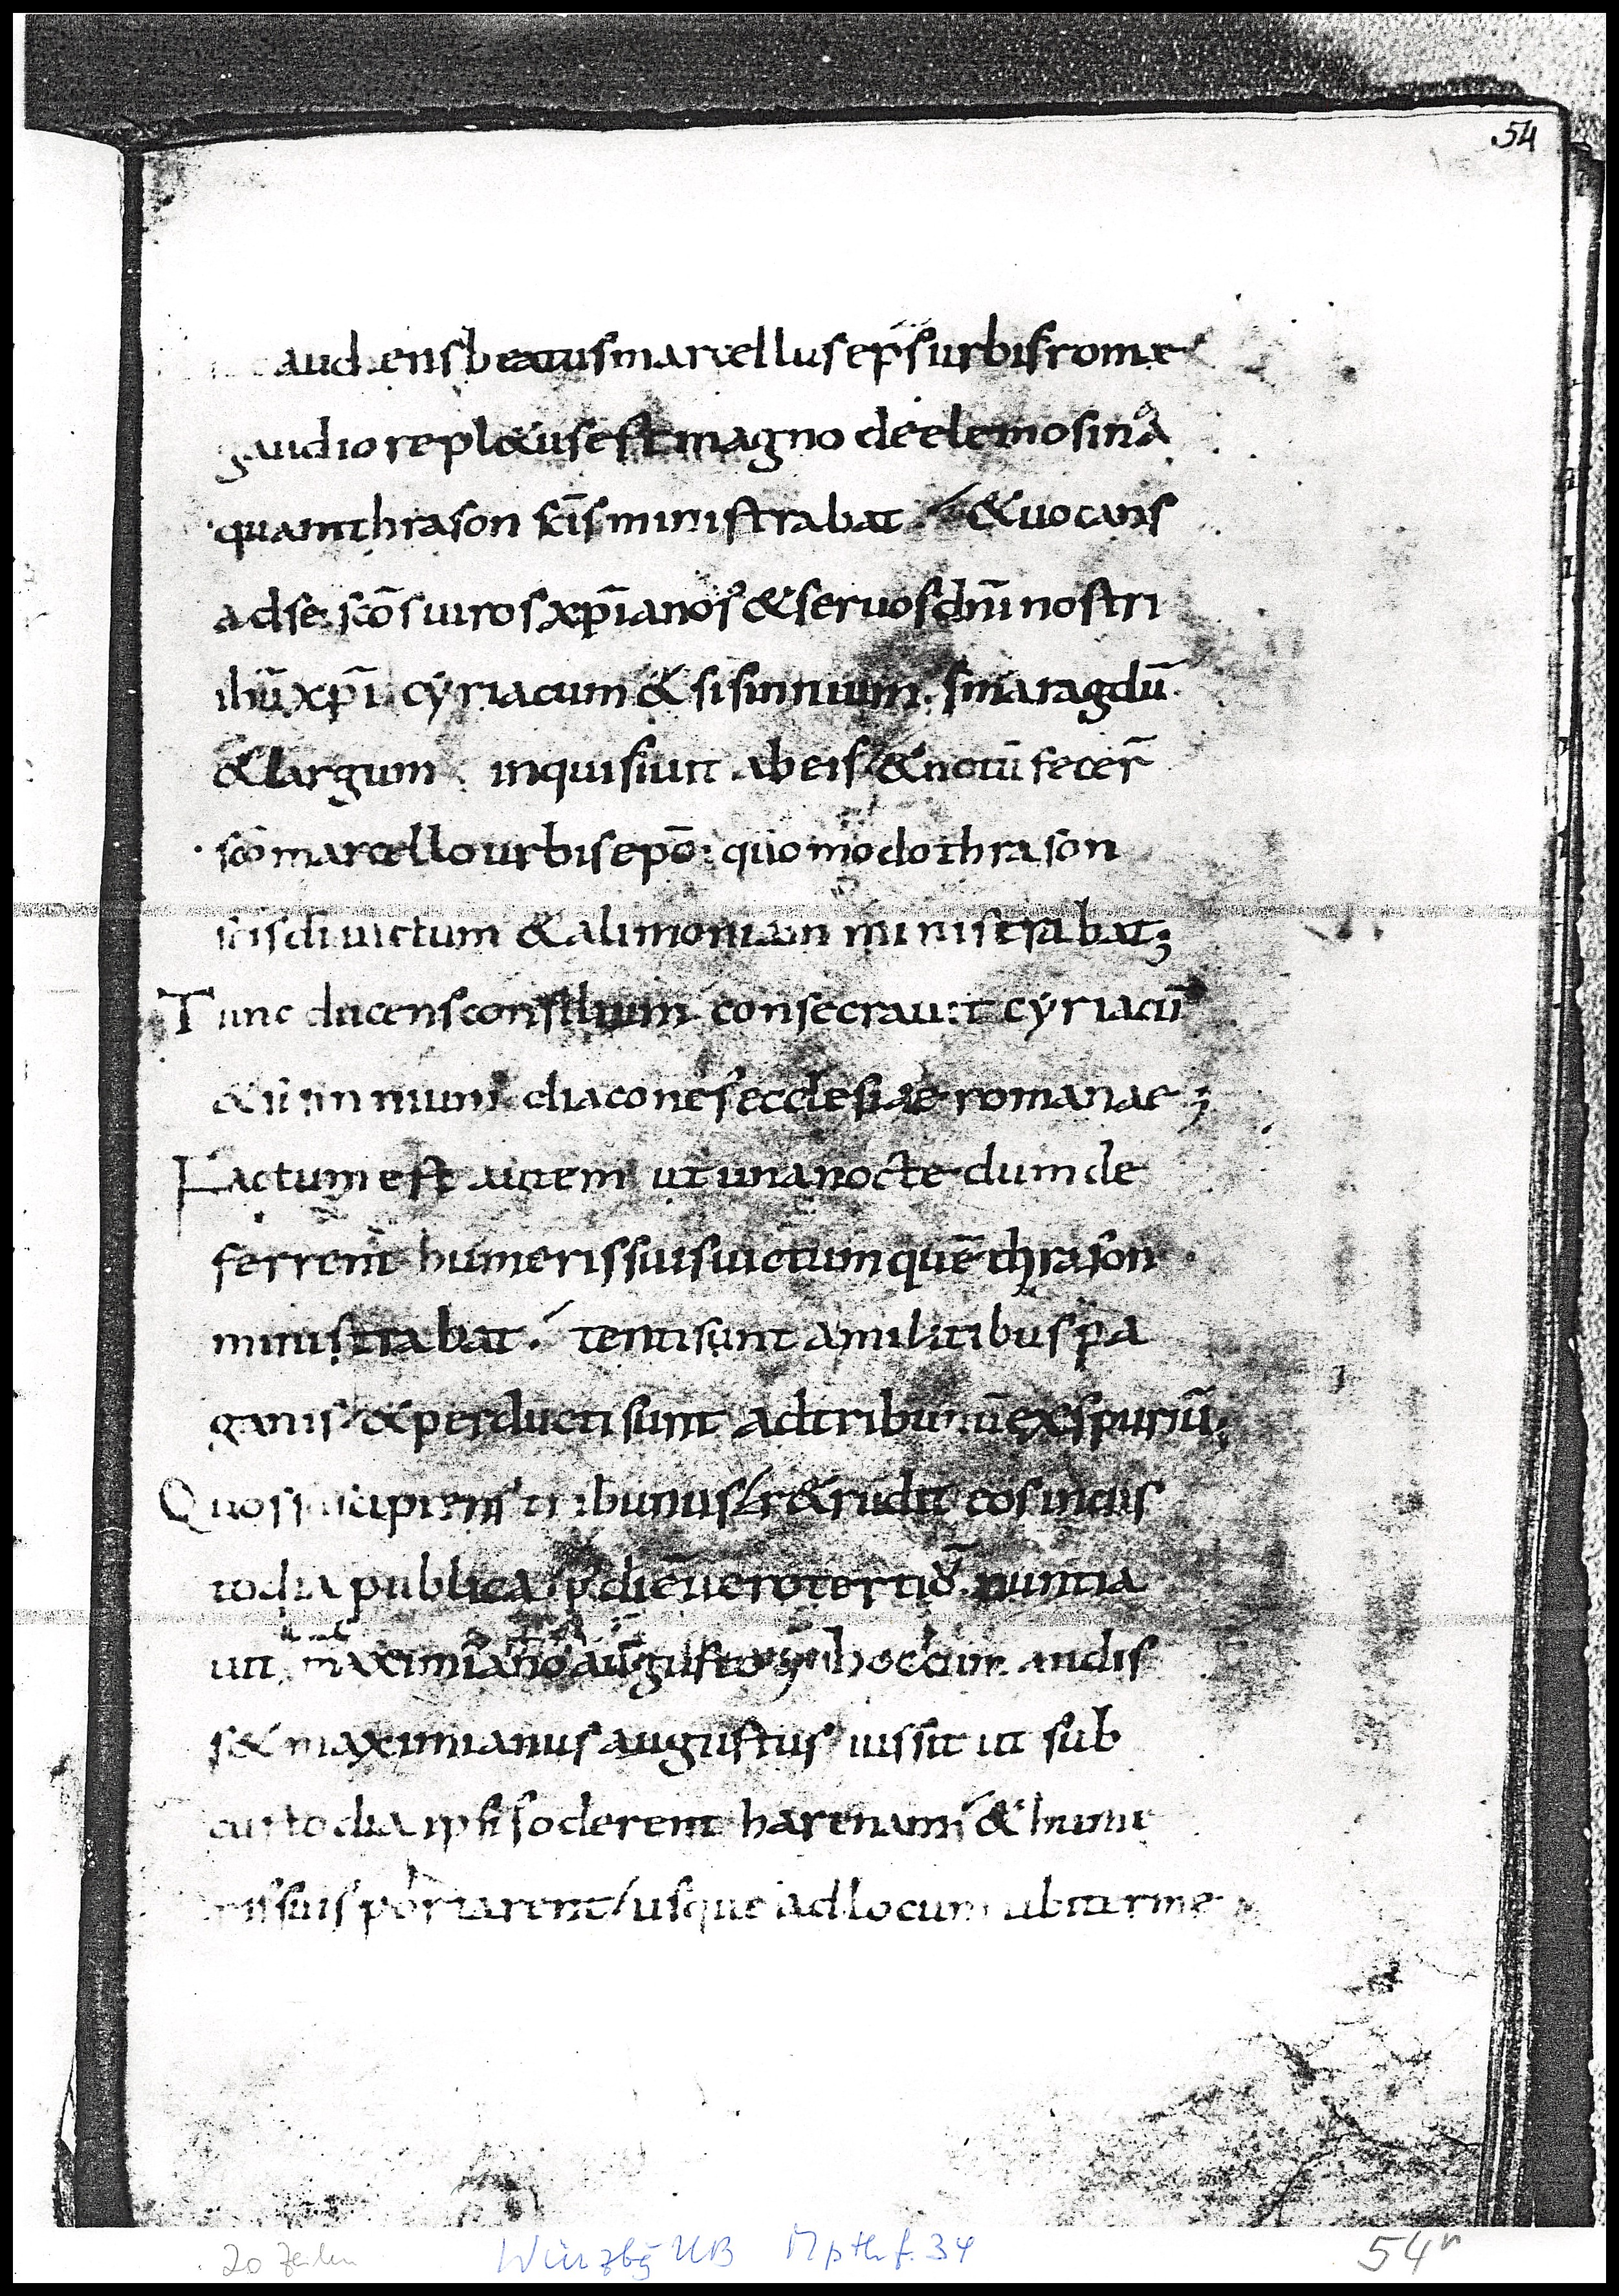 54
audiens beatus marcellus ep̄s urbis romae
gaudio repl&us est magno de elemosina
quam thrason sc̄is ministrabat & uocans
ad se sc̄os uiros xp̄ianos & seruos dn̄i nostri
ih̄u xp̄i cyriacum & sisinnium smaragdū
& largum inquisiuit ab eis & notū fecer̄
sc̄o marcello urbis ep̄o quomodo thrason
sc̄is di uictum & alimoniam ministrabat;
Tunc ducens consilium consecrauit cyriacū
& sisinnium diacones ecclesiae romanae;
Factum est autem ut una nocte dum de
ferrent humeris suis uictum quē thrason
ministrabat tenti sunt a militibus pa
ganis & perducti sunt ad tribunū exspuriū;
Quos suscipiens tribunus r&rudit eos in cus
todia publica p̄ diē uero tertiō nuntia
uit maximiano augusto hoc cum audis
s& maximianus augustus iussit ut sub
custodia ipsi foderent harenam & hume
ris suis portarent usque ad locum ubi terme
20 Zeilen Würzbg UB Mpthf. 34 54r